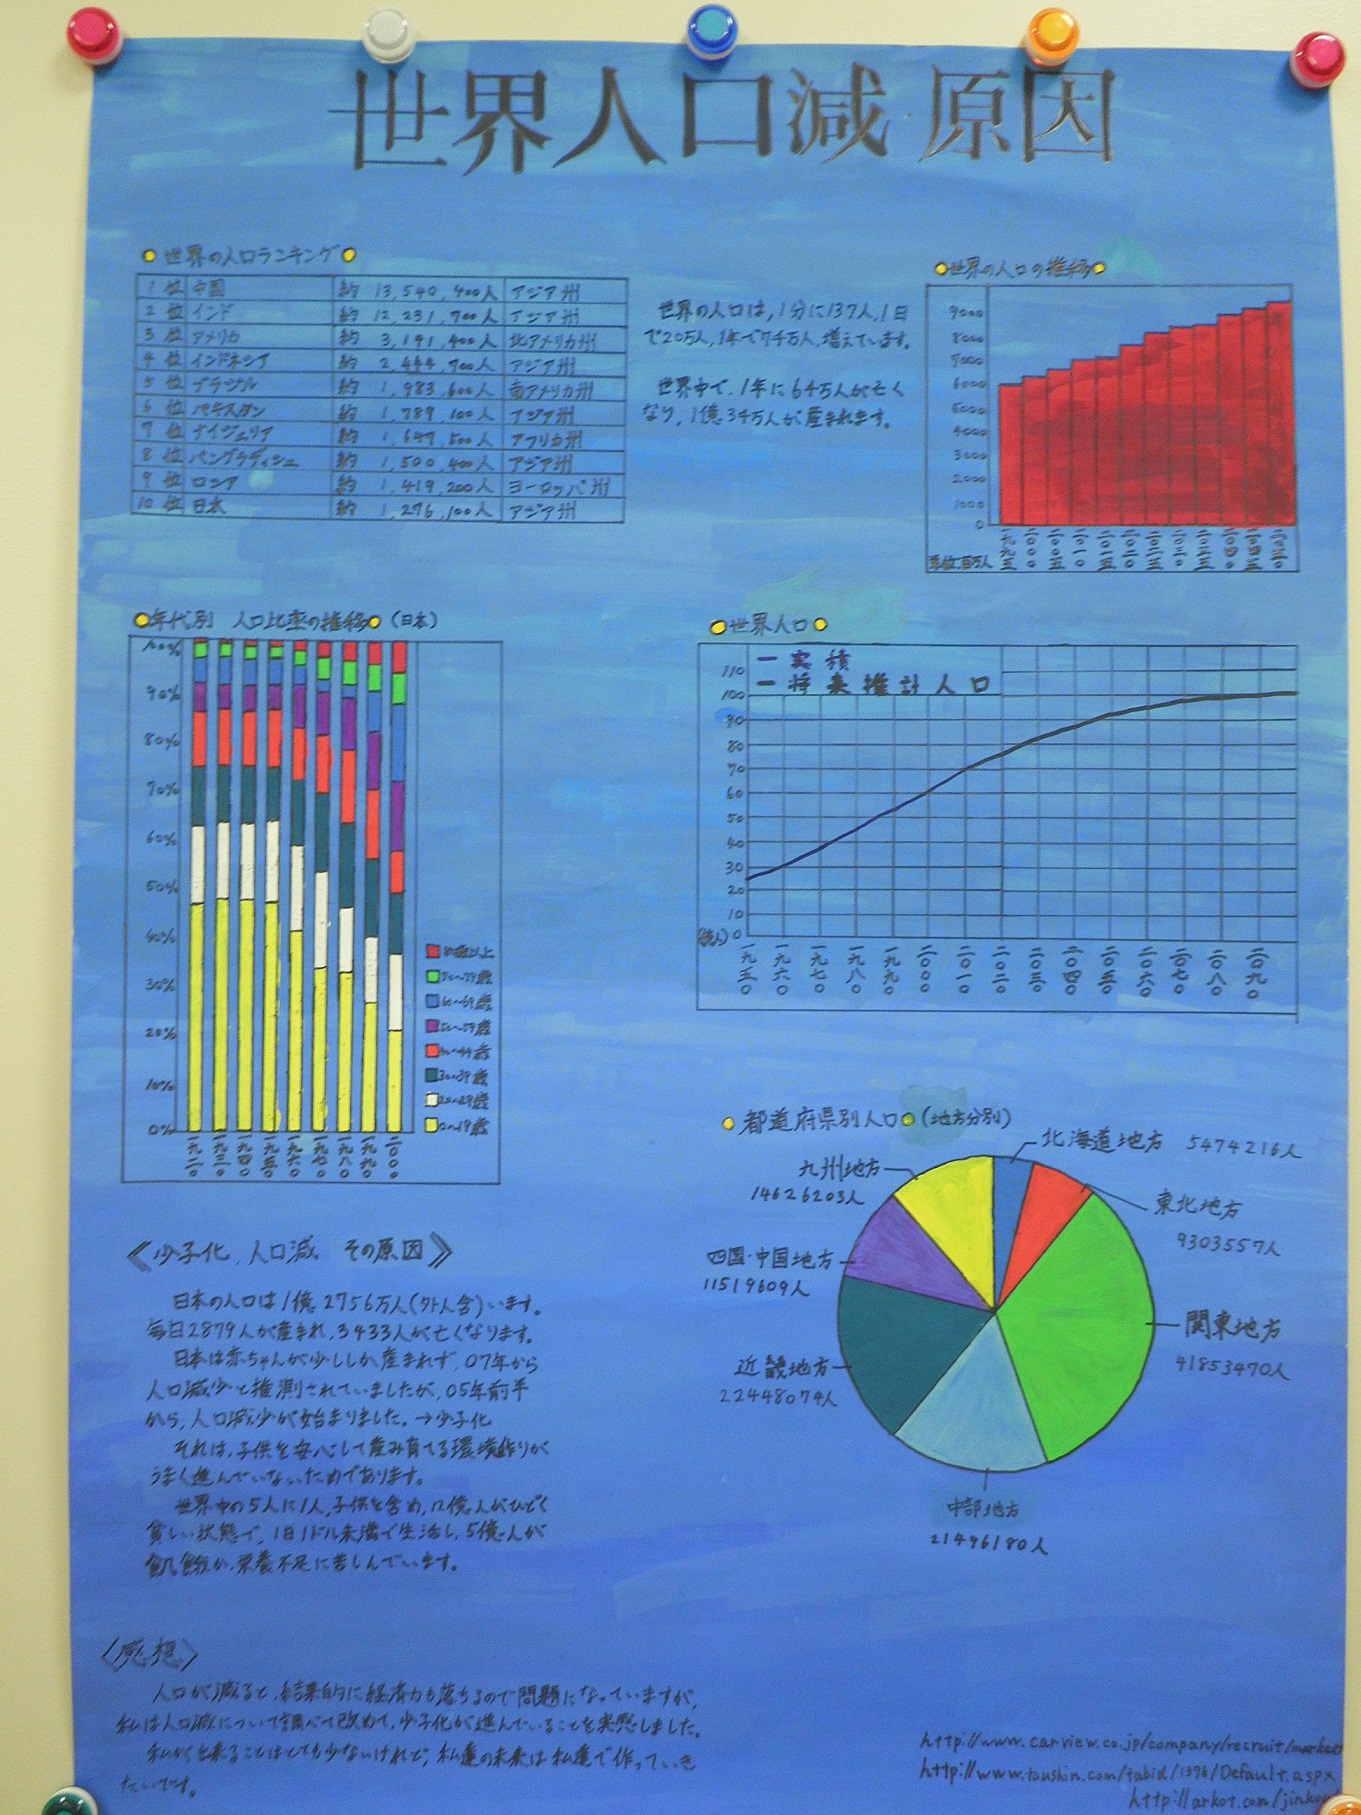 世界人口減・原因
世界の人口ランキング
1 位 中国 約 13,540,400人 アジア州
2 位 インド 約 12,231,700人 アジア州
3 位 アメリカ 約 3,191,400人 北アメリカ州
4 位 インドネシア 約 2,444,700人 アジア州
5 位 ブラジル 約 1,983,600人 南アメリカ州
6 位 パキスタン 約 1,789,100人 アジア州
7 位 ナイジェリア 約 1,647,500人 アフリカ州
8 位 バングラディシュ 約 1,500,400人 アジア州
9 位 ロシア 約 1,419,200人 ヨーロッパ州
10 位 日本 約 1,276,100人 アジア州
世界の人口は,1分に137人,1日
で20万人,1年で7千万人,増えています。
世界中で、1年に64万人が亡く
なり,1億34万人が産まれます。
世界の人口の推移
9000
8000
7000
6000
5000
4000
3000
2000
1000
0
単位:百万人
一九九五 二〇〇〇 二〇〇五 二〇一〇 二〇一五 二〇二〇 二〇二五 二〇三〇 二〇三五 二〇四〇 二〇四五 二〇五〇
年代別 人口比率の推移 (日本)
100%
90%
80%
70%
60%
50%
40%
30%
20%
10%
0%
一九二〇 一九三〇 一九四〇 一九五〇 一九六〇 一九七〇 一九八〇 一九九〇 二〇〇〇
80歳以上
70~79歳
60~69歳
50~59歳
40~49歳
30~39歳
20~29歳
0~19歳
世界人口
実積
将来推計人口
110
100
90
80
70
60
50
40
30
20
10
0
(億人)
一九五〇 一九六〇 一九七〇 一九八〇 一九九〇 二〇〇〇 二〇一〇 二〇二〇 二〇三〇 二〇四〇 二〇五〇 二〇六〇 二〇七〇 二〇八〇 二〇九〇
都道府県別人口 (地方分別)
北海道地方 5474216人
東北地方
9303557人
関東地方
41853470人
中部地方
21496180人
近畿地方
22448074人
四国・中国地方
11519609人
九州地方
14626203人
《少子化,人口減 その原因》
日本の人口は1億2756万人(外人含)います。
毎日2879人が産まれ,3433人が亡くなります。
日本は赤ちゃんが少ししか産まれず,07年から
人口減少と推測されていましたが,05年前半
から,人口減少が始まりました。→少子化
それは,子供を安心して産み育てる環境作りが
うまく進んでいないためであります。
世界中の5人に1人,子供を含め,12億人がひどく
貧しい状態で,1日1ドル未満で生活し,5億人が
飢餓か,栄養不足に苦しんでいます。
〈感想〉
人口が減ると,結果的に経済力も落ちるので問題になっていますが,
私は人口減について調べて改めて,少子化が進んでいることを実感しました。
私が出来ることはとても少ないけれど,私達の未来は私達で作っていき
たいです。
http://www.carview.co.jp/company/recruit/market
http://www.toushin.com/tabid/1376/Default.aspx
http://arkot.com/jinkou